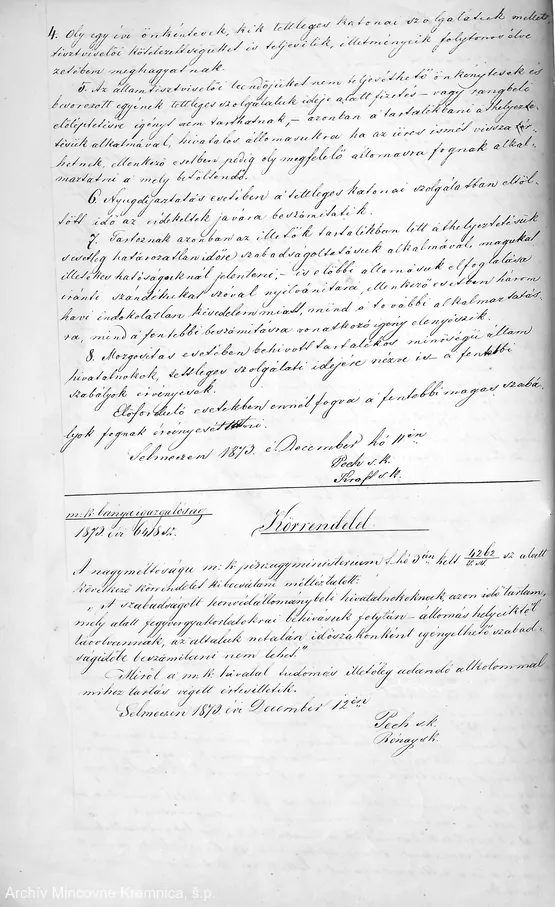 4. Oly egy évi önkéntesek, kik tettleges katonai szolgálatuk mellett
tisztviselői kötelezettségüket is teljesítik, illetményeik folytonos élve-
zetében meghagyatnak.
5. Az államtisztviselői teendőjüket nem teljesíthető önkénytesek és
besorozott egyének tettleges szolgálatuk ideje alatt fizetés – vagy rangbeli
előléptetésre igényt nem tarthatnak, – azonban a tartalékbani áthelyezte-
tésük alkalmával, hivatalos állomásukra ha az üres ismét vissza tér-
hetnek, ellenkező esetben pedig oly megfelelő állomásra fognak alkal-
maztatni a mely betöltendő.
6. Nyugdíjaztatás esetében a tettleges katonai szolgálatban eltöl-
tött idő az érdekeltek javára beszámítatik.
7. Tartoznak azonban az illetők tartalékban lett áthelyeztetésük
s esetleg határozatlan időre szabadságoltatásuk alkalmával magukat
illetékes hatóságuknál jelenteni, – is előbbi állomásuk elfoglalása
iránti szándékukat szóval nyilvánítani, ellenkező esetben három
havi indokolatlan késedelem miatt, mind a további alkalmaztatás-
ra, mind a fentebbi beszámításra vonatkozó igény elenyészik.
8. Mozgósítás esetében behívott tartalékos minőségű állam
hivatalnokok, tettleges szolgálati idejére nézve is a fentebbi
szabályok érvényesek.
Előforduló esetekben ennél fogva a fentebbi magas szabá-
lyok fognak érvényesíttetni.
Selmeczen 1873. é December hó 11 én
Pech s.k.
Kraft s.k.
m: k. bányaigazgatóság
1873. évi 6418 sz.
Körrendelet
A nagyméltóságu m: k. pénzügyministerium f. hó 3 án kelt 4262 sz alatt
következő körrendeletet kibocsátani méltóztatott:
„A szabadságolt honvédállománybeli hivatalnokoknak azon idő tartam,
mely alatt fegyvergyakorlatokrai behívásuk folytán – állomás helyeiktől
távol vannak, az általuk netalán időszakonként igényelhető szabad-
ságidőbe beszámítani nem lehet."
Miről a m: k. hivatal tudomás illetőleg adandó alkalommal
mihez tartás végett értesíttetik.
Selmeczen 1873. évi December 12 én
Pech s.k.
Rónay s.k.
Archív Mincovne Kremnica, š.p.